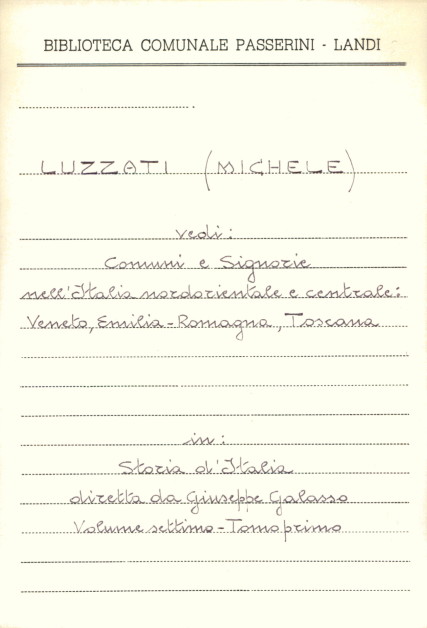 BIBLIOTECA COMUNALE PASSERINI - LANDI
LUZZATI (MICHELE)
vedi:
Comuni e Signorie
nell'Italia nordorientale e centrale:
Veneto, Emilia-Romagna, Toscana
in:
Storia d'Italia
diretta da Giuseppe Galasso
Volume settimo - Tomo primo